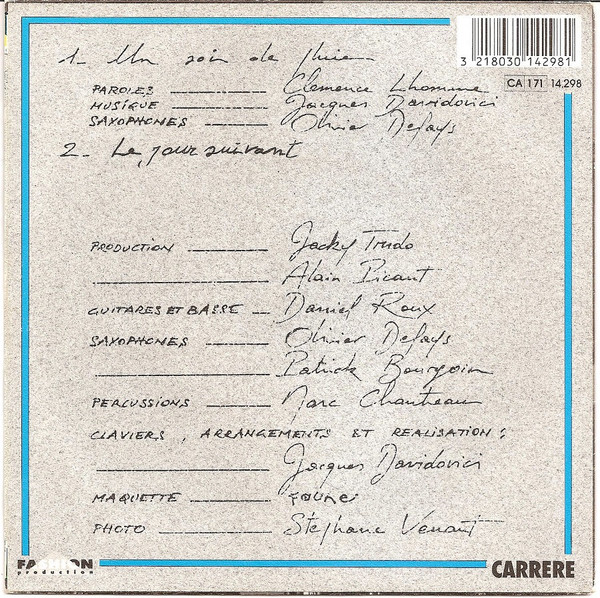 3 218030 142981
CA 171 14.298
1- Un soir de pluie
PAROLES Clémence Lhomme
MUSIQUE Jacques Davidovici
SAXOPHONES Olivier Defays
2- Le jour suivant
PRODUCTION Jacky Trudo
Alain Picaut
GUITARES ET BASSE Daniel Roux
SAXOPHONES Olivier Defays
Patrick Bourgoin
PERCUSSIONS Marc Chantereau
CLAVIERS, ARRANGEMENTS ET REALISATION :
Jacques Davidovici
MAQUETTE
PHOTO Stéphane
FASHION
production
CARRERE